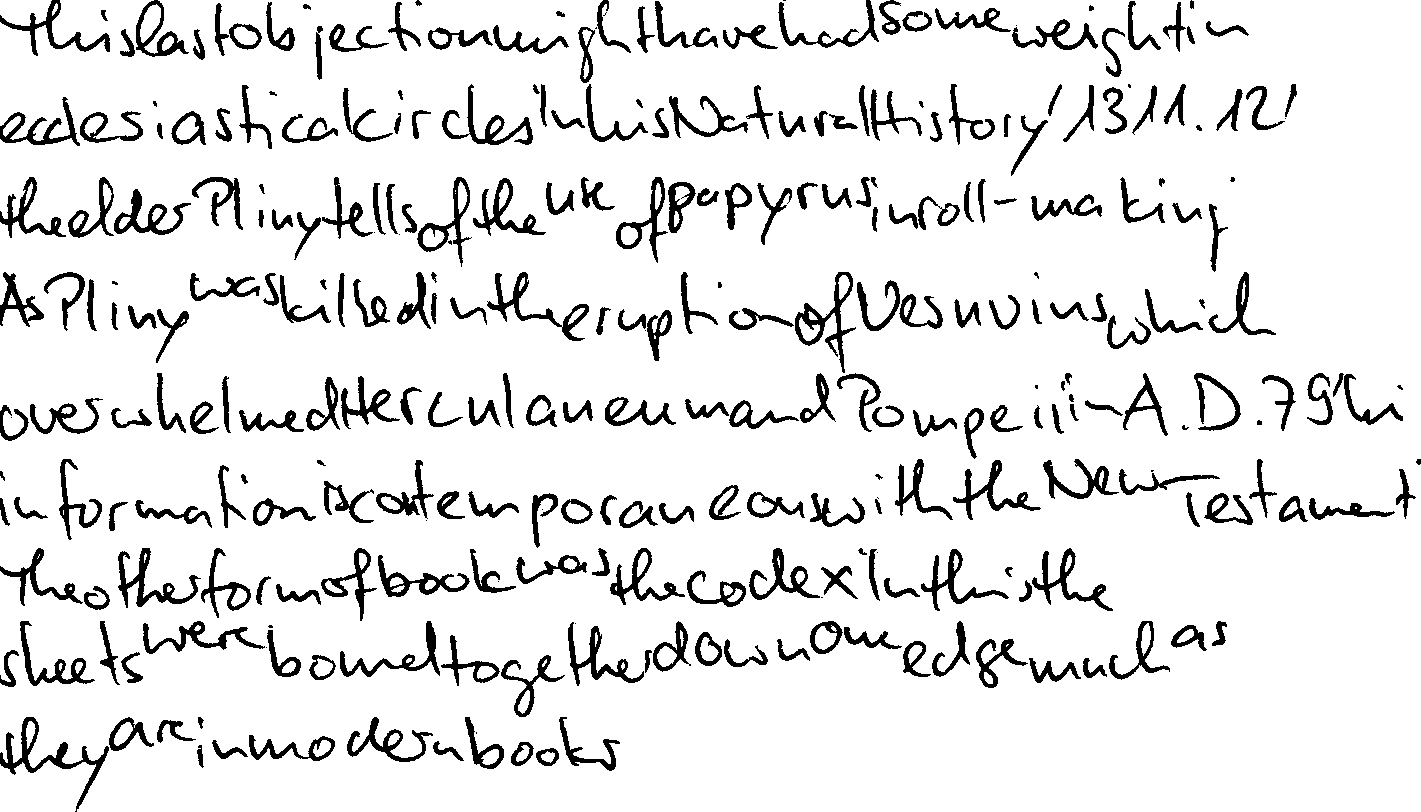 This last objection might have had some weight in
ecclesiastical circles' In his Natural History' 13 11.12'
the elder Pliny tells of the use of papyrus in roll-making
As Pliny was killed in the eruption of Vesuvius which
overwhelmed Herculaneum and Pompeii in A.D.79' his
information is contemporaneous with the New Testament'
The other form of book was the codex' In this the
sheets were bound together down one edge much as
they are in modern books